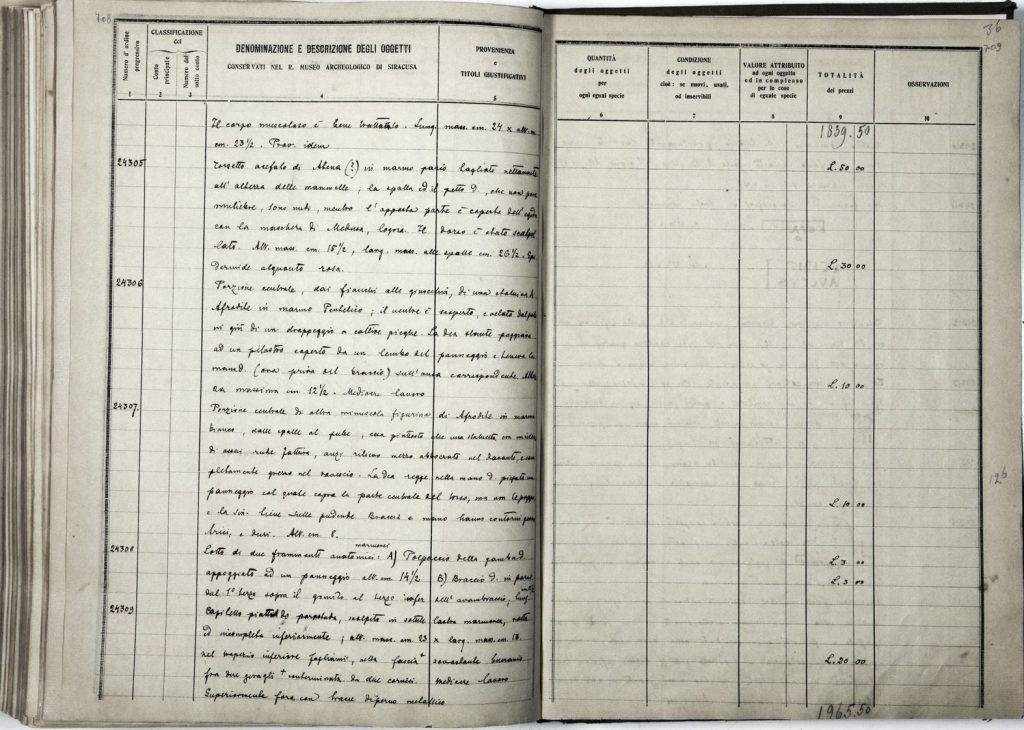 708
CLASSIFICAZIONE
del
Numero d'ordine progressivo
Conto principale
Numero del sotto conto
DENOMINAZIONE E DESCRIZIONE DEGLI OGGETTI
CONSERVATI NEL R. MUSEO ARCHEOLOGICO DI SIRACUSA
PROVENIENZA
e
TITOLI GIUSTIFICATIVI
1 2 3 4 5
Il corpo muscoloso è bene trattato. Lung. mass. cm. 24 x alt. m.
cm. 23½. Prov. idem
24305 Torsetto acefalo di Atena (?) in marmo pario tagliato nettamente
all'altezza delle mammelle; la spalla ed il petto d., che non pare
muliebre, sono nudi, mentre l'opposta parte è coperta dell'egida
con la maschera di Medusa, logora. Il dorso è stato scalpel
lato. Alt. mass. cm. 15½, larg. mass. alle spalle cm. 26½. Epi
dermide alquanto rosa.
24306 Porzione centrale, dai fianchi alle ginocchia, di una statuina di
Afrodite in marmo Pentelico; il ventre è scoperto, e velato dal pube
in giù di un drappeggio a cattive pieghe. La dea stante poggiava
ad un pilastro coperto da un lembo del panneggio e teneva la
mano d. (ora priva del braccio) sull'anca corrispondente. Altez
za massima cm 12½. Mediocre lavoro
24307. Porzione centrale di altra minuscola figurina di Afrodite in marmo
bianco, dalle spalle al pube; essa piuttosto che una statuetta era
di assai rude fattura, anzi rilievo nel davanti, e com
pletamente grezzo nel rovescio. La dea regge nella mano d.
panneggio col quale copre la parte centrale del torso, ma non le poppe,
e la sin. tiene sulle pudende. Braccia e mano hanno contorni
e duri. Alt. cm. 8.
marmorei
24308 Lotto di due frammenti anatomici: A) Polpaccio della gamba d.
appoggiato ad un panneggio alt. cm 14½ B) Braccio d. in
dal 1° terzo sopra il gomito al terzo infer. dell'avambraccio, lung.
24309 Capitello piatto da parastada, scolpito in sottile lastra marmorea, rotta
ed incompleta inferiormente; alt. mass. cm. 23 x larg. mass. cm. 18.
nel inferiore fogliami, nella fascia + sovrastante
fra due + conterminata da due cornici. Mediocre lavoro
Superiormente foro con tracce di perno metallico
36
709
QUANTITÀ
degli oggetti
per
ogni egual specie
CONDIZIONE
degli oggetti
cioè: se nuovi, usati,
od inservibili
VALORE ATTRIBUITO
ad ogni oggetto
ed in complesso
per le cose
di eguale specie
TOTALITÀ
dei prezzi
OSSERVAZIONI
6 7 8 9 10
1839.50
L. 50 00
L. 30 00
L. 10 00
L. 10 00
L. 3 00
L. 3 00
L. 20 00
1965.50